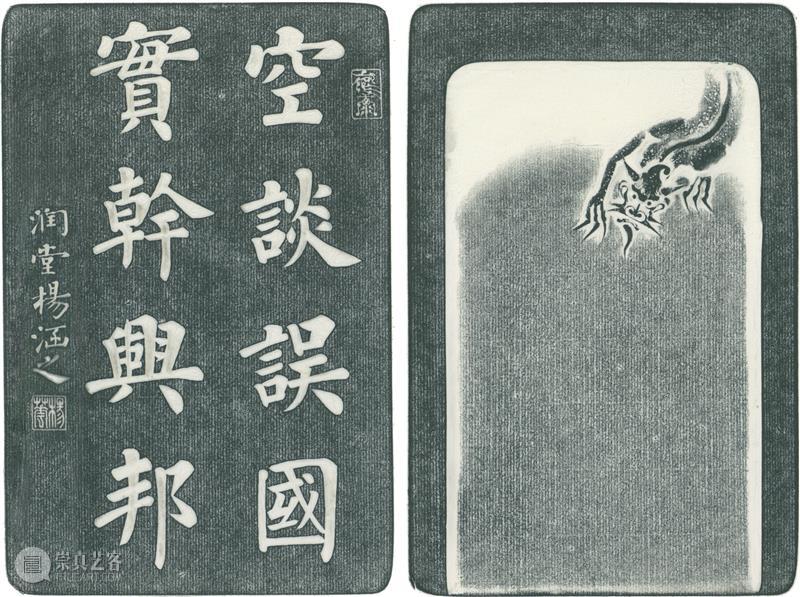 空談誤國
實幹興邦
润堂楊涵之
崇真艺客